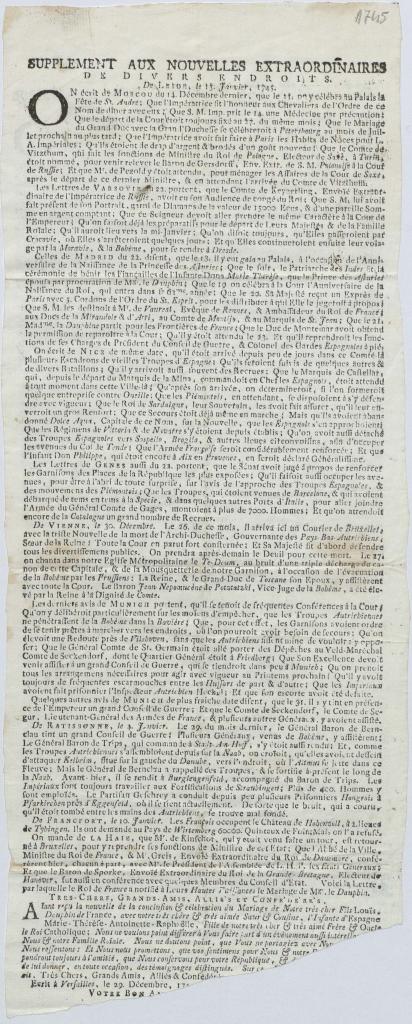 1745
SUPPLEMENT AUX NOUVELLES EXTRAORDINAIRES
DE DIVERS ENDROITS.
De LEIDE, le 15. Janvier, 1745.
ON écrit de Moscou du 14. Décembre dernier, que le 11. on y célébra au Palais la
Fête de St. André; Que l'Impératrice fit l'honneur aux Chevaliers de l'Ordre de ce
Nom de diner avec eux; Que S. M. Imp. prit le 12. une Médecine par précaution;
Que le départ de la Cour étoit toujours fixé au 27. du même mois; Que le Mariage
du Grand-Duc avec la Gran'Duchesse se célébreroit à Petersbourg au mois de Juil-
let prochain au plus tard; Que l'Impératrice avoit fait faire à Paris les Habits de Nôces pour L.
A. Impériales; Qu'ils étoient de drap d'argent & brodés d'un goût nouveau; Que le Comte de
Vitzthum, qui fait les fonctions de Ministre du Roi de Pologne, Electeur de Saxe, à
étoit nommé, pour venir relever le Baron de Gersdorff, Env. Extr. de S. M. Polonoise à la Cour
de Russie; Et que Mr. de Pezold y étoit attendu, pour ménager les Affaires de la Cour de Saxe,
après le départ de ce dernier Ministre, & en attendant l'arrivée du Comte de Vitzthum.
Les Lettres de VARSOVIE du 22. portent, que le Comte de Keyserling, Envoié Extraor-
dinaire de l'Impératrice de Russie, avoit eu son Audience de congé du Roi; Que S. M. lui avoit
fait présent de son Portrait, garni de Diamans de la valeur de 15000. Ecus, & d'une pareille Som-
me en argent comptant; Que ce Seigneur devoit aller prendre le même Caractère à la Cour de
l'Empereur; Qu'on faisoit déjà les préparatifs pour le départ de Leurs Majestés & de la Famille
Roïale; Qu'il auroit lieu vers la mi-Janvier; Qu'on disoit toujours, qu'Elles passeroient par
Cracovie, où Elles s'arrêteroient quelques jours; Et qu'Elles continueroient ensuite leur voïa-
ge par la Moravie, & la Bohême, pour se rendre à Dresde.
Celles de MADRID du 22. disent, que le 13. il y eut gala au Palais, à l'occasion de l'Anni-
versaire de la Naissance de la Princesse des Asturies; Que le soir, le Patriarche des Indes fit la
cérémonie de bénir les Fiançailles de l'Infante Dona Marie Thérèse, que le Prince des Asturies
épousa par procuration de Mr. le Dauphin; Que le 19. on célébra à la Cour l'Anniversaire de la
Naissance du Roi, qui entra dans sa année; Que le 20. Sa Majesté reçut un Exprès de
Paris avec 3. Cordons de l'Ordre du St. Esprit, pour les distribuer à qui Elle le jugeroit à propos;
Que S. M. les destinoit à Mr. de Evêque de Rennes, & Ambassadeur du Roi de France;
aux Ducs de la Mirandole & d'Atri, au Comte de & au Marquis de St. Que le 21.
Madme. la Dauphine partit pour les Frontières de France; Que le Duc de Montemar avoit obtenu
la permission de reparoître à la Cour; Qu'il y étoit attendu le 23. Et qu'il reprendroit les fonc-
tions de ses Charges de Président du Conseil de Guerre, & Colonel des Gardes Espagnoles à pié.
On écrit de NICE du même date, qu'il étoit arrivé depuis peu de jours dans ce Comté-là
plusieurs Escadrons de vieilles Troupes d'Espagne; Qu'ils seroient suivis de quelques autres &
de divers Bataillons; Qu'il y arrivoit aussi souvent des Recrues; Que le Marquis de Castellar,
qui, depuis le départ du Marquis de la Mina, commandoit en Chef les Espagnols, étoit attendu
à tout moment dans cette Ville-là; Qu'après son arrivée, on détermineroit, si l'on formeroit
quelque entreprise contre Oneille; Que les Piémontois, en attendant, se disposoient à s'y défen-
dre avec vigueur; Que le Roi de Sardaigne, leur Souverain, les avoit fait assurer, qu'il leur en-
verroit un gros Renfort; Que ce Secours étoit déjà même en marche; Mais qu'ils avoient aban-
donné Dolce Aqua, Capitale de ce Nom, sur la Nouvelle, que les Espagnols s'en approchoient
Que les Régimens de Vittoria & de Navarre s'y étoient depuis établis; Qu'on avoit aussi détaché
des Troupes Espagnoles vers Sospello, Breglio, & autres lieux circonvoisins, afin d'occuper
les avenues du Col de Tende; Que l'Armée Françoise seroit considérablement renforcée; Et que
l'Infant Don Philippe, qui étoit encore à Aix en Provence, en seroit déclaré Généralissime.
Les Lettres de GENES aussi du 22. portent, que le Sénat avoit jugé à propos de renforcer
les Garnisons des Places de la République les plus exposées; Qu'il faisoit aussi occuper les ave-
nues, pour être à l'abri de toute surprise, sur l'avis de l'approche des Troupes Espagnoles, &
des mouvemens des Piémontois; Que les Troupes, qui étoient venues de Barcelone, & qui avoient
débarqué de tems en tems à la Spezie, & dans quelques autres Ports d'Italie, pour aller joindre
l'Armée du Général Comte de Gages, montoient à plus de 7000. Hommes; Et qu'on attendoit
encore de la Catalogne un grand nombre de Recrues.
De VIENNE, le 30. Décembre. Le 26. de ce mois, il arriva ici un Courier de Bruxelles,
avec la triste Nouvelle de la mort de l'Archi-Duchesse, Gouvernante des Pays-Bas Autrichiens,
Sœur de la Reine: Toute la Cour en parut fort consternée; Et Sa Majesté fit d'abord défendre
tous les divertissemens publics. On prendra après-demain le Deuil pour cette mort. Le 27.
on chanta dans notre Eglise Métropolitaine le Te-Deum, au bruit d'une triple décharge du ca-
non de cette Capitale, & de la Mousqueterie de notre Garnison, à l'occasion de l'évacuation
de la Bohême par les Prussiens: La Reine, & le Grand-Duc de Toscane son Epoux, y assistèrent
avec toute la Cour. Le Baron Jean Nepomucène de Vice-Juge de la Bohême, a été éle-
vé par la Reine à la Dignité de Comte.
Les derniers avis de MUNICH portent, qu'il se tenoit de fréquentes Conférences à la Cour;
Qu'on y délibéroit particulièrement sur les moïens d'empêcher, que les Troupes Autrichiennes
ne pénétrassent de la Bohême dans la Bavière; Que, pour cet effet, les Garnisons avoient ordre
de se tenir prêtes à marcher vers les endroits, où l'on pourroit avoir besoin de secours; Qu'on
élevoit une Redoute près de Vilshoven, sans que les Autrichiens fissent mine de vouloir s'y oppo-
ser; Que le Général Comte de St. Germain étoit allé porter des Dépêches au Veld-Maréchal
Comte de Seckendorff, dont le Quartier-Général étoit à Friedberg; Que Son Excellence devoit
venir assister à un grand Conseil de Guerre, qui se tiendroit dans peu à Munich; Qu'on prenoit
tous les arrangemens nécessaires pour agir avec vigueur au Printems prochain; Qu'il y avoit
toujours de fréquentes escarmouches entre les Hussars de part & d'autre; Que les Impériaux
avoient fait prisonnier l'Inspecteur Autrichien Heckel; Et que son escorte avoit été défaite.
Quelques autres avis de MUNICH de plus fraiche date disent, que le 31. il s'y tint en présen-
ce de l'Empereur un grand Conseil de Guerre; Et que le Comte de Seckendorff, le Comte de Se-
gur, Lieutenant-Général des Armées de France, & plusieurs autres Généraux, y avoient assisté.
De RATISBONNE, le 4. Janvier. Le 29. du mois dernier, le Général Baron de Bern-
clau tint un grand Conseil de Guerre: Plusieurs Généraux, venus de Bohême, y assistèrent:
Le Général Baron de Trips, qui commande à Stadt-Am-Hoff, s'y étoit aussi rendu: Et, comme
les Troupes Autrichiennes s'assembloient depuis sur la Naab, on croïoit, qu'elles avoient dessein
d'attaquer Kelheim, située sur la gauche du Danube, vers l'endroit, où l'Altmuhl se jette dans ce
Fleuve; Mais le Général de Bernclau a rappellé ces Troupes, & se fortifie à présent le long de
la Naab. Avant-hier, il se rendit à Burglengenfeld, accompagné du Baron de Trips. Les
Impériaux font toujours travailler aux Fortifications de Straubingen: Plus de 400. Hommes y
sont emploïés. Le Partisan Geschrey a conduit depuis peu plusieurs Prisonniers Hongrois à
Pfarkirchen près d'Eggenfeld, où il se tient actuellement. De sorte que le bruit, qui a couru,
qu'il étoit tombé entre les mains des Autrichiens, se trouve mal fondé.
De FRANCFORT, le 10. Janvier. Les François occupent le Château de Hohenzoll, à 2. lieues
de Tubingen. Ils ont demandé au Pays de Wirtemberg 60000. Quintaux de Foin; Mais on l'a refusé.
On mande de LA HAYE, que Mr. de Kinschot, qui y étoit venu faire un tour, est retour-
né à Bruxelles, pour y reprendre ses fonctions de Ministre de cet Etat; Que l'Abbé de la Ville,
Ministre du Roi de France, & Mr. Greis, Envoié Extraordinaire du Roi de Danemarc, confé-
rèrent hier, chacun à part, avec Mr. le Président de l'Assemblée de L. H. P. les Etats Généraux;
Et que le Baron de Sporken, Envoié Extraordinaire du Roi de la Grande-Bretagne, Electeur de
Hanover, fut aussi en conférence avec quelques Membres du Conseil d'Etat. Voici la Lettre,
par laquelle le Roi de France a notifié à Leurs Hautes Puissances le Mariage de Mr. le Dauphin.
TRES-CHERS, GRANDS AMIS, ALLIÉS ET CONFEDERÉS.
Aiant reçu la nouvelle de la conclusion & célébration du Mariage de Notre très cher Fils Louis,
Dauphin de France, avec notre très chère & très aimée Sœur & Cousine, l'Infante d'Espagne
Marie-Thérèse-Antoinette-Raphaëlle, Fille de notre très cher & très aimé Frère & Oncle
le Roi Catholique: Nous ne voulons point différer à Vous faire part d'un événement aussi intéressant
Nous & notre Famille Roïale. Nous ne doutons point, que Vous ne partagiez avec
Nous ressentons: Et Nous nous promettons, que vos sentimens pour Nous & notre
pondront toujours à l'amitié, que Nous conservons pour votre République, &
de lui donner, en toute occasion, des témoignages distingués. Sur ce
ait, Très Chers, Grands Amis, Alliés & Confédé
Ecrit à Versailles, le 29. Décembre, 17
VOTRE BON A